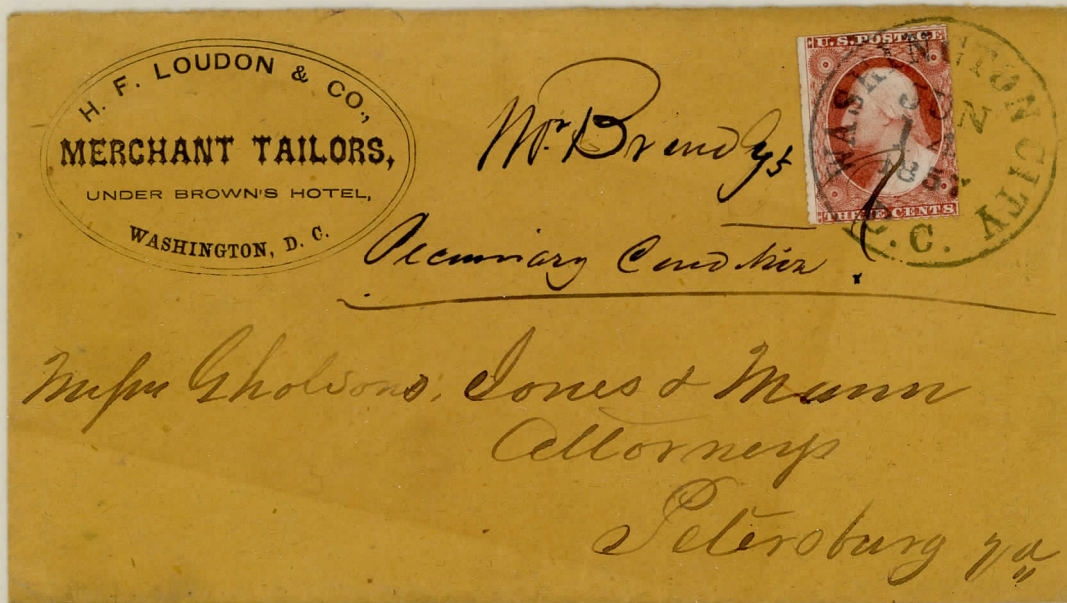 H. F. LOUDON & CO.,
MERCHANT TAILORS,
UNDER BROWN'S HOTEL,
WASHINGTON, D. C.
U.S. POSTAGE
THREE CENTS
WASHINGTON CITY
D.C.
Mr. Brandy's
Pecuniary Condition.
Messrs Gholsons, Jones & Mann
Attorneys
Petersburg Va